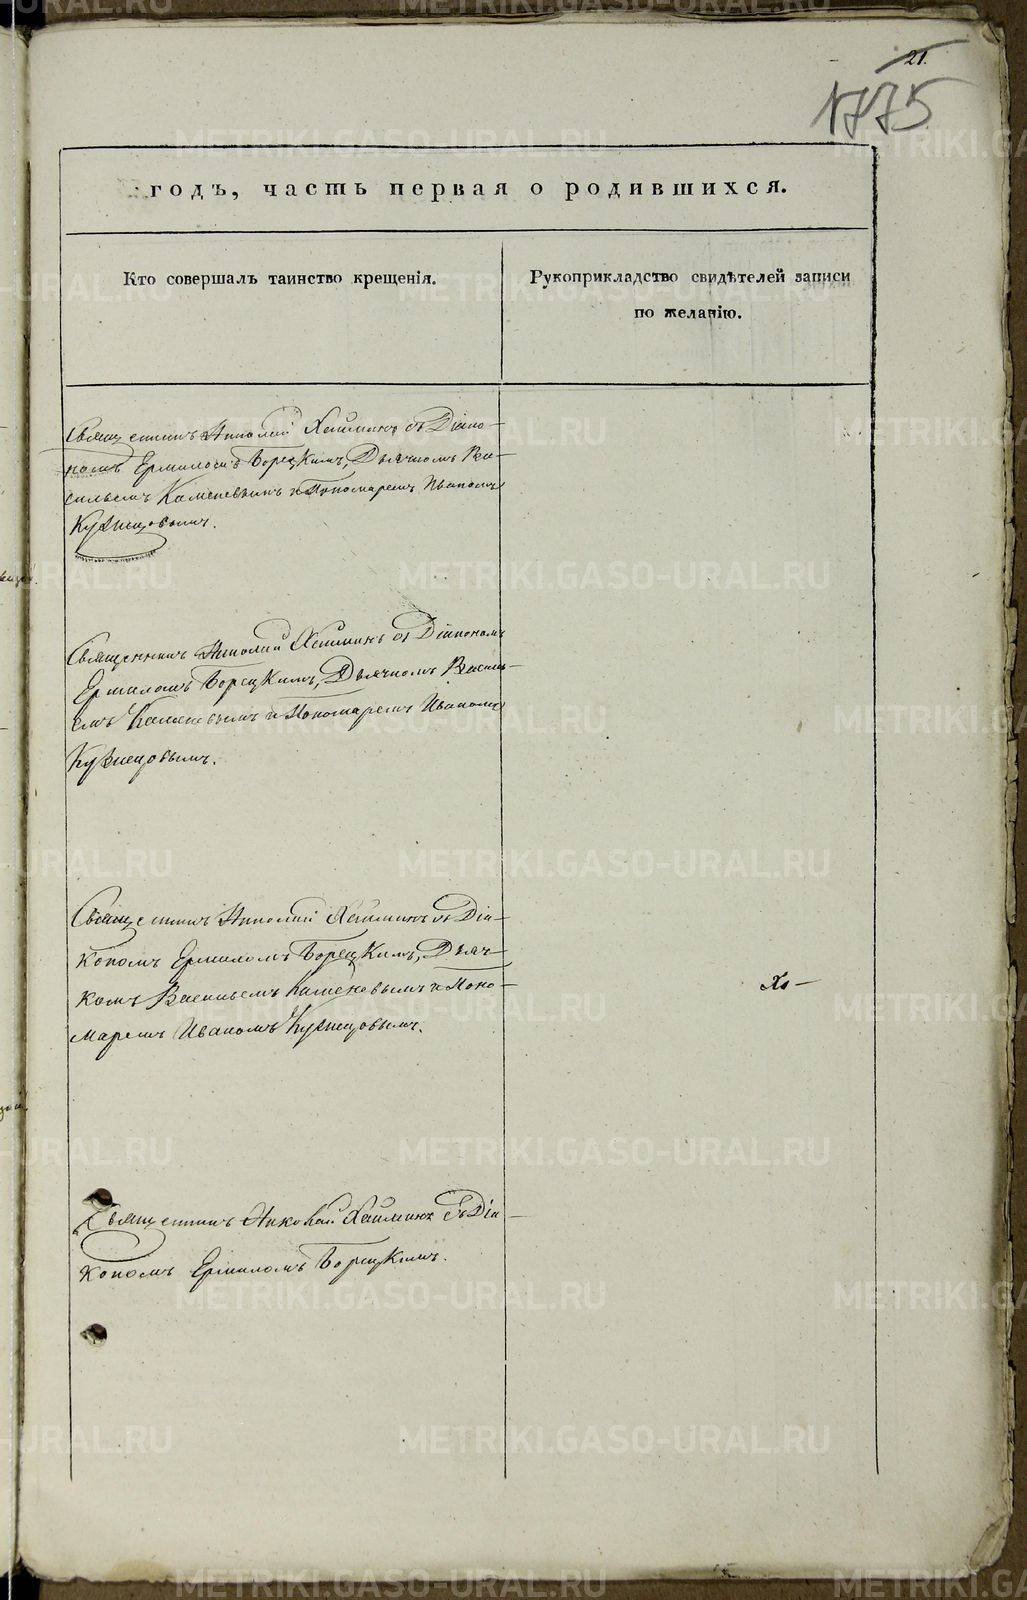 21.
1775
годъ, часть первая о родившихся.
Кто совершалъ таинство крещенія.
Рукоприкладство свидѣтелей записи
по желанію.
Священникъ Николай Хаиминъ съ Діако-
номъ Ермиломъ Борецкимъ, Дьячкомъ Ва-
сильемъ Каменевымъ и Пономаремъ Иваномъ
Кузнецовымъ.
Священникъ Николай Хаиминъ съ Діакономъ
Ермиломъ Борецкимъ, Дьячкомъ Василь-
емъ Каменевымъ и Пономаремъ Иваномъ
Кузнецовымъ.
Священникъ Николай Хаиминъ съ Діа-
кономъ Ермиломъ Борецкимъ, Дьяч-
комъ Васильемъ Каменевымъ и Поно-
маремъ Иваномъ Кузнецовымъ.
Священникъ Николай Хаиминъ съ Діа-
кономъ Ермиломъ Борецкимъ.
METRIKI.GASO-URAL.RU